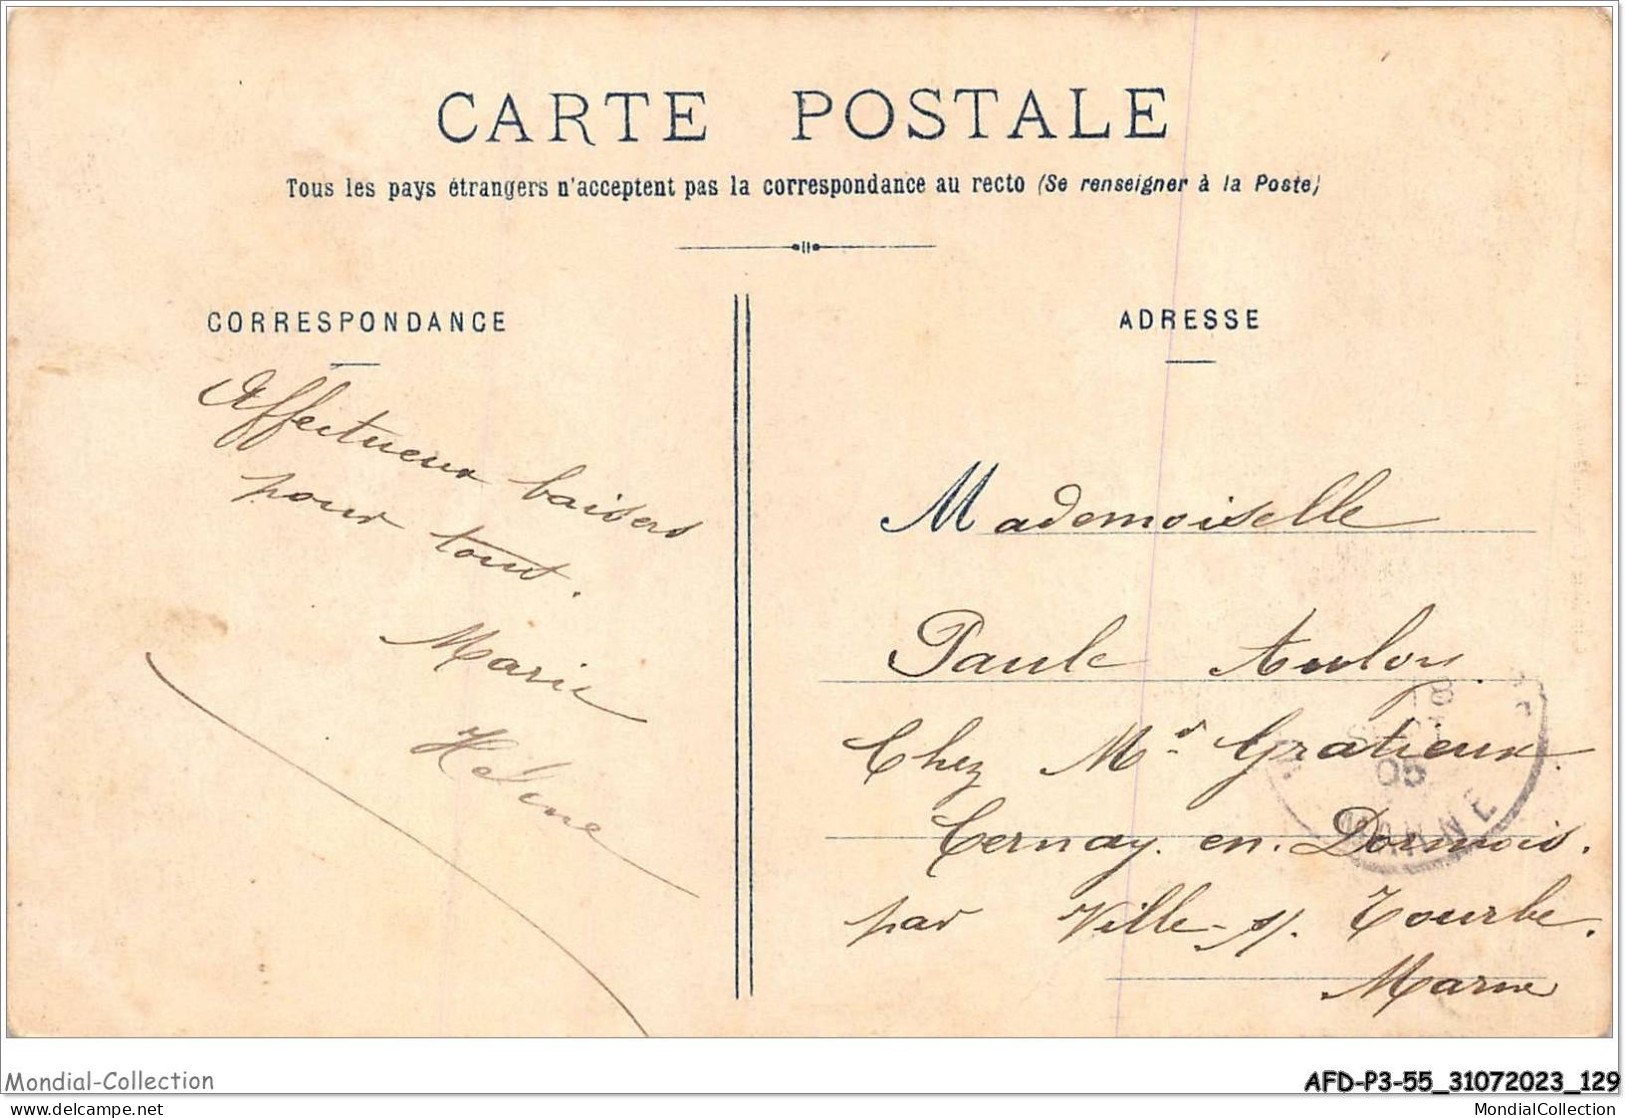 CARTE POSTALE
Tous les pays étrangers n'acceptent pas la correspondance au recto (Se renseigner à la Poste)
CORRESPONDANCE
Affectueux baisers
pour tous.
Marie
Hélène
ADRESSE
Mademoiselle
Paule
Chez Mr Gratieux.
Cernay. en. Dormois.
par Ville-s/. Tourbe.
Marne
18
SEPT
05
MARNE
Mondial-Collection
AFD-P3-55_31072023_129
delcampe.net
MondialCollection